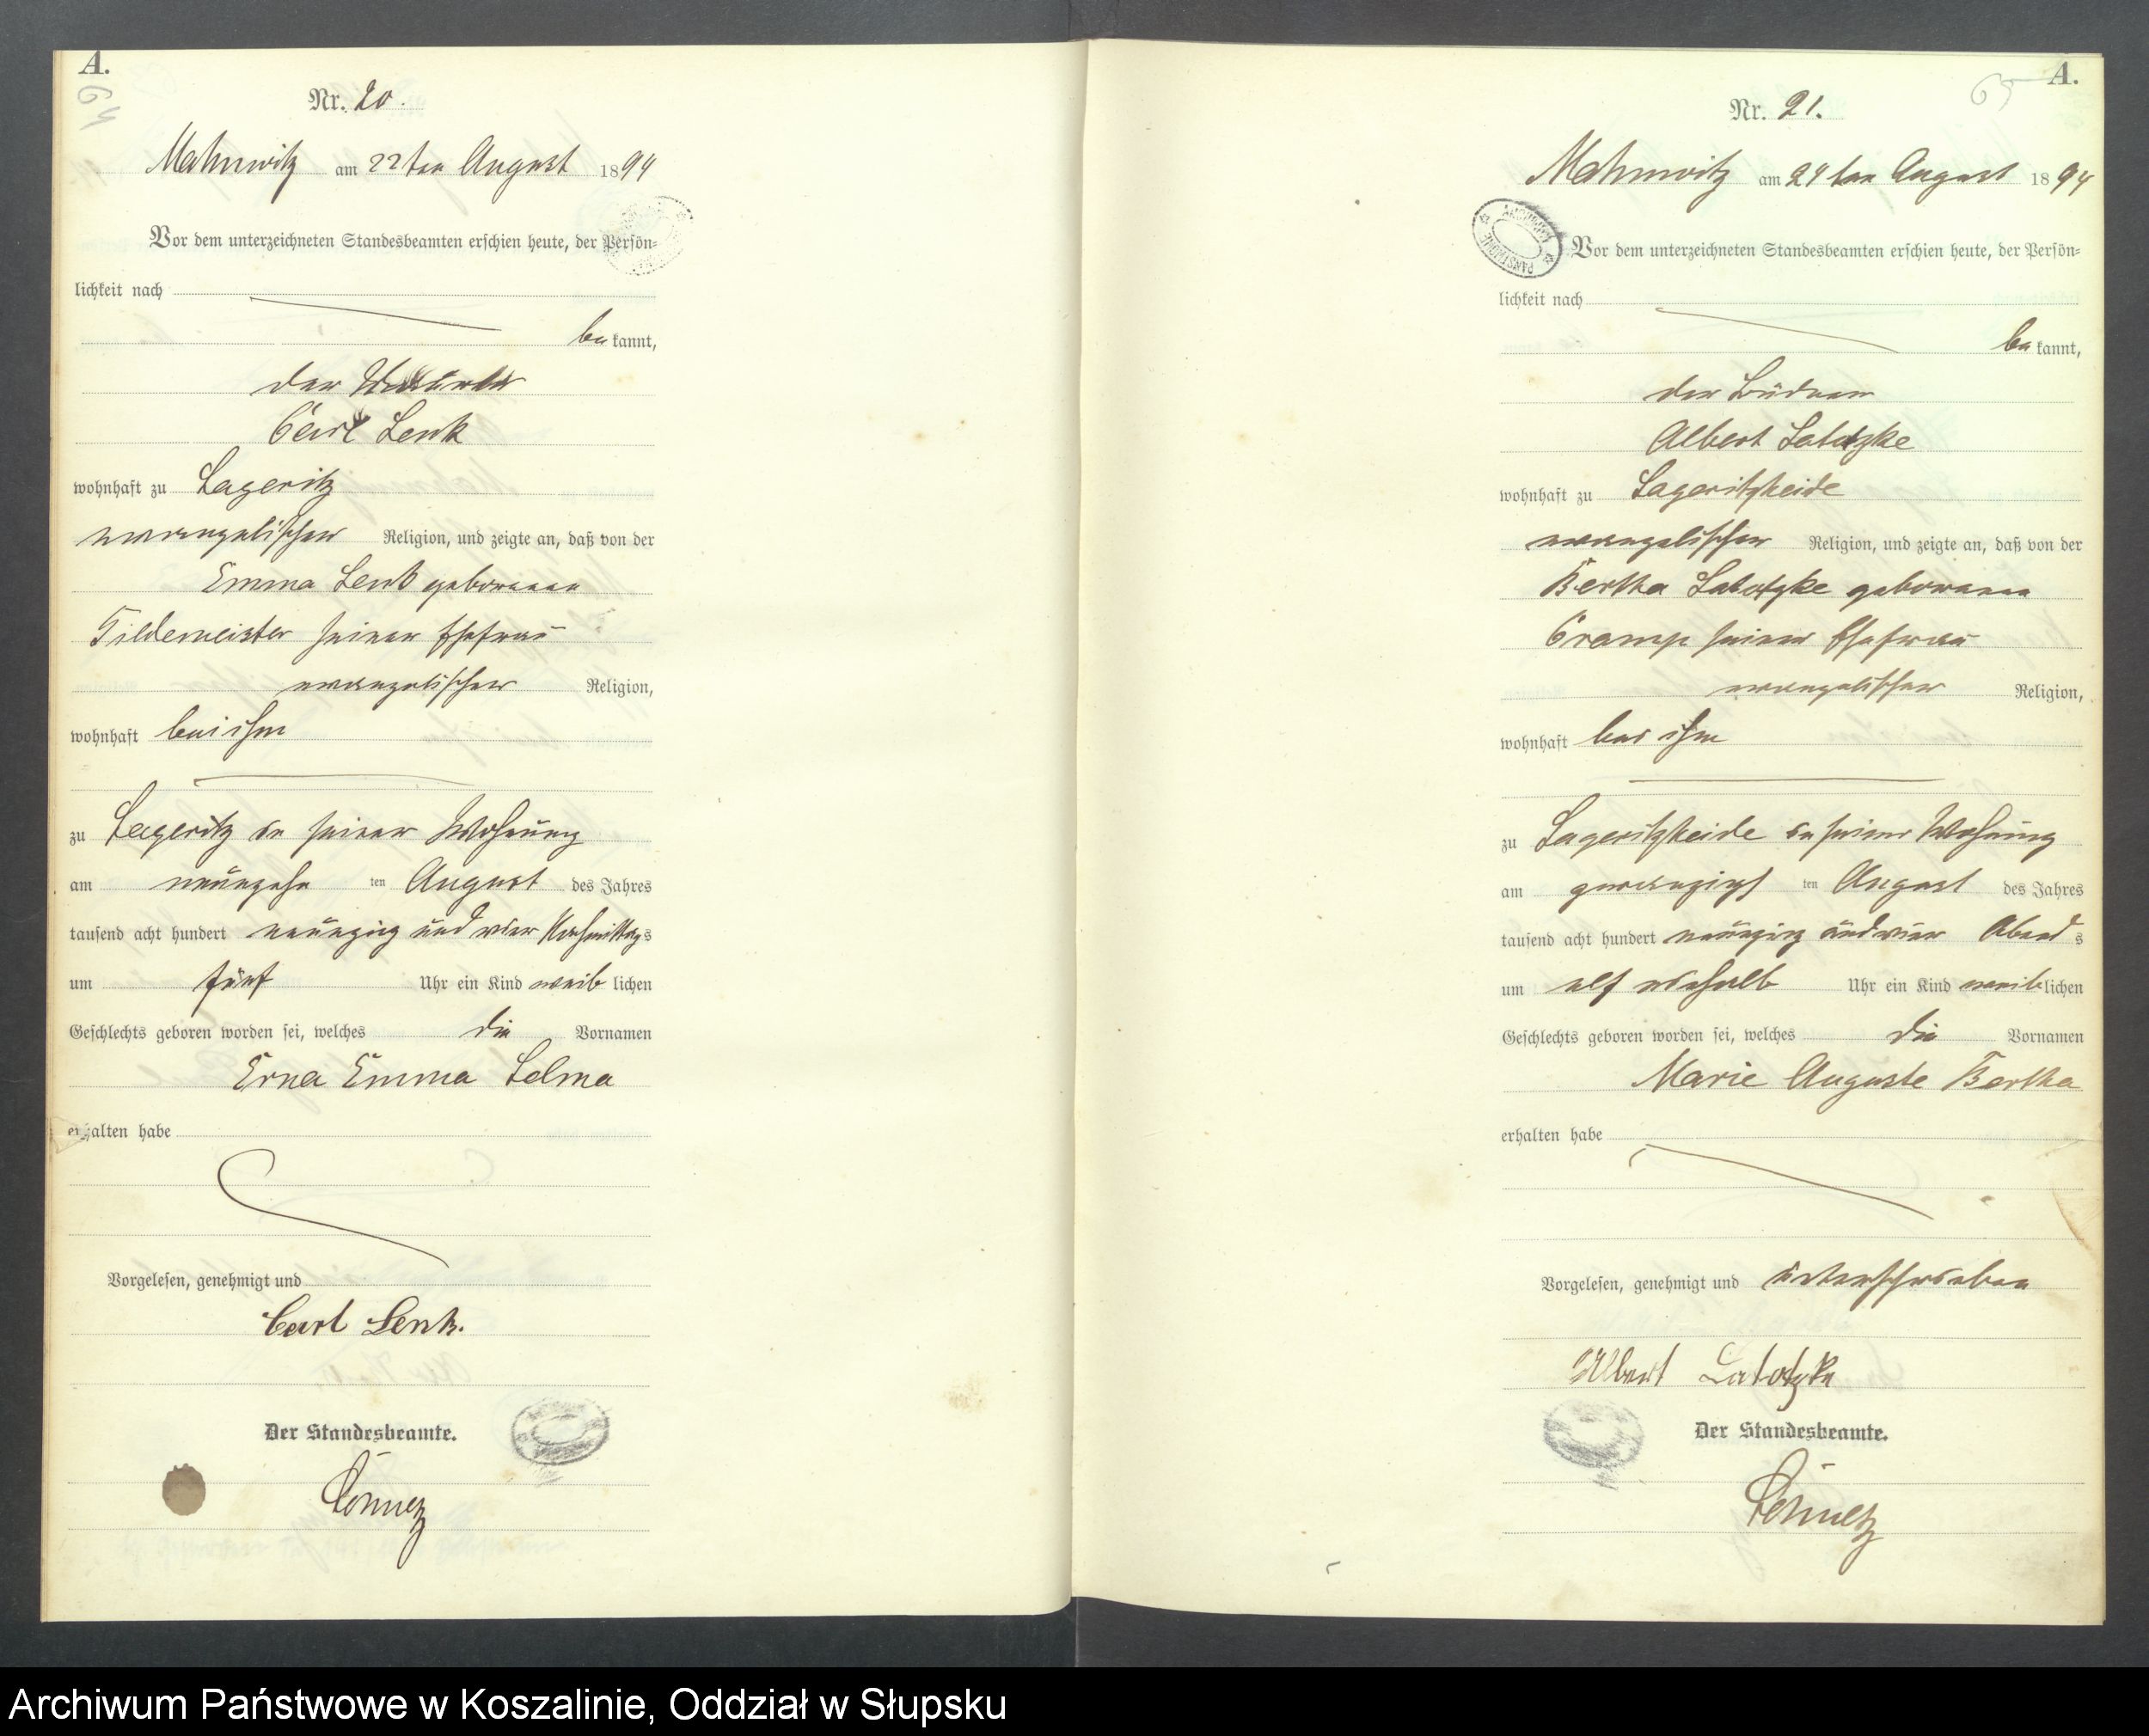 A.
64
Nr. 20.
Mahnwitz am 22ten August 1894
Vor dem unterzeichneten Standesbeamten erschien heute, der Persön-
lichkeit nach
bekannt,
der
Carl Lenk
wohnhaft zu Lageritz
evangelischer Religion, und zeigte an, daß von der
Emma Lenk geborenen
Tildemeister seiner Ehefrau
evangelischer Religion,
wohnhaft bei ihm
zu Lageritz in seiner Wohnung
am neunzehnten August des Jahres
tausend acht hundert neunzig und vier Nachmittags
um fünf Uhr ein Kind weiblichen
Geschlechts geboren worden sei, welches die Vornamen
Erna Emma Selma
erhalten habe
Vorgelesen, genehmigt und
Carl Lenk.
Der Standesbeamte.
A.
65
Nr. 21.
Mahnwitz am 24ten August 1894
Vor dem unterzeichneten Standesbeamten erschien heute, der Persön-
lichkeit nach
bekannt,
der Büdner
Albert Latotzke
wohnhaft zu Lageritzheide
evangelischer Religion, und zeigte an, daß von der
Bertha Latotzke geborenen
Cramp seiner Ehefrau
evangelischer Religion,
wohnhaft bei ihm
zu Lageritzheide in seiner Wohnung
am zwanzigsten August des Jahres
tausend acht hundert neunzig und vier Abends
um elf einhalb Uhr ein Kind weiblichen
Geschlechts geboren worden sei, welches die Vornamen
Marie Auguste Bertha
erhalten habe
Vorgelesen, genehmigt und unterschrieben
Albert Latotzke
Der Standesbeamte.
Archiwum Państwowe w Koszalinie, Oddział w Słupsku